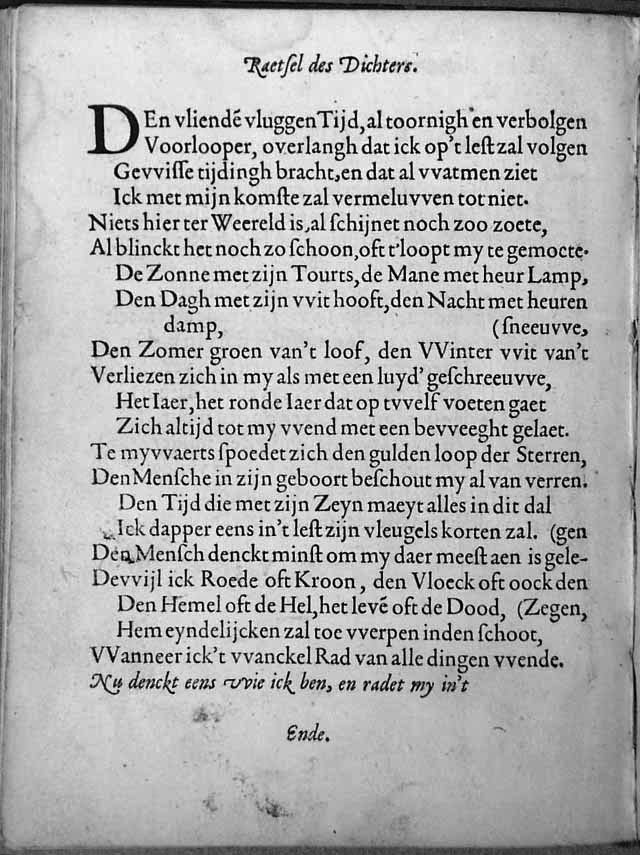 Raetſel des Dichters.
DEn vliendē vluggen Tijd, al toornigh en verbolgen
Voorlooper, overlangh dat ick op't leſt zal volgen
Gevviſſe tijdingh bracht, en dat al vvatmen ziet
Ick met mijn komſte zal vermeluvven tot niet.
Niets hier ter Weereld is, al ſchijnet noch zoo zoete,
Al blinckt het noch zo ſchoon, oft t'loopt my te gemoete.
De Zonne met zijn Tourts, de Mane met heur Lamp,
Den Dagh met zijn vvit hooft, den Nacht met heuren
damp, (ſneeuvve,
Den Zomer groen van't loof, den VVinter vvit van't
Verliezen zich in my als met een luyd' geſchreeuvve,
Het Iaer, het ronde Iaer dat op tvvelf voeten gaet
Zich altijd tot my vvend met een bevveeght gelaet.
Te myvvaerts ſpoedet zich den gulden loop der Sterren,
Den Menſche in zijn geboort beſchout my al van verren.
Den Tijd die met zijn Zeyn maeyt alles in dit dal
Ick dapper eens in't leſt zijn vleugels korten zal. (gen
Den Menſch denckt minſt om my daer meeſt aen is gele-
Devvijl ick Roede oft Kroon, den Vloeck oft oock den
Den Hemel oft de Hel, het levē oft de Dood, (Zegen,
Hem eyndelijcken zal toe vverpen inden ſchoot,
VVanneer ick't vvanckel Rad van alle dingen vvende.
Nu denckt eens vvie ick ben, en radet my in't
Ende.